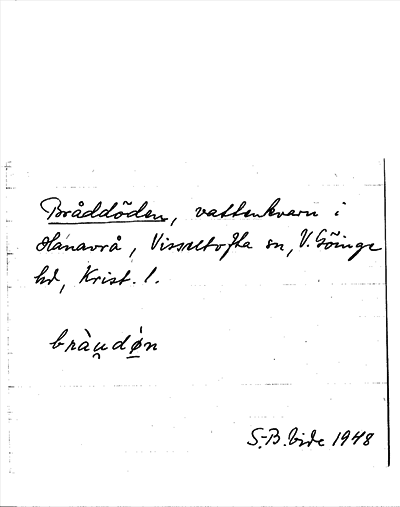 Bråddöden, vattenkvarn i
Hanavrå, Visseltofta sn, V. Göinge
hd, Krist. l.
bràu̯dǿn
S.-B. Vide 1948